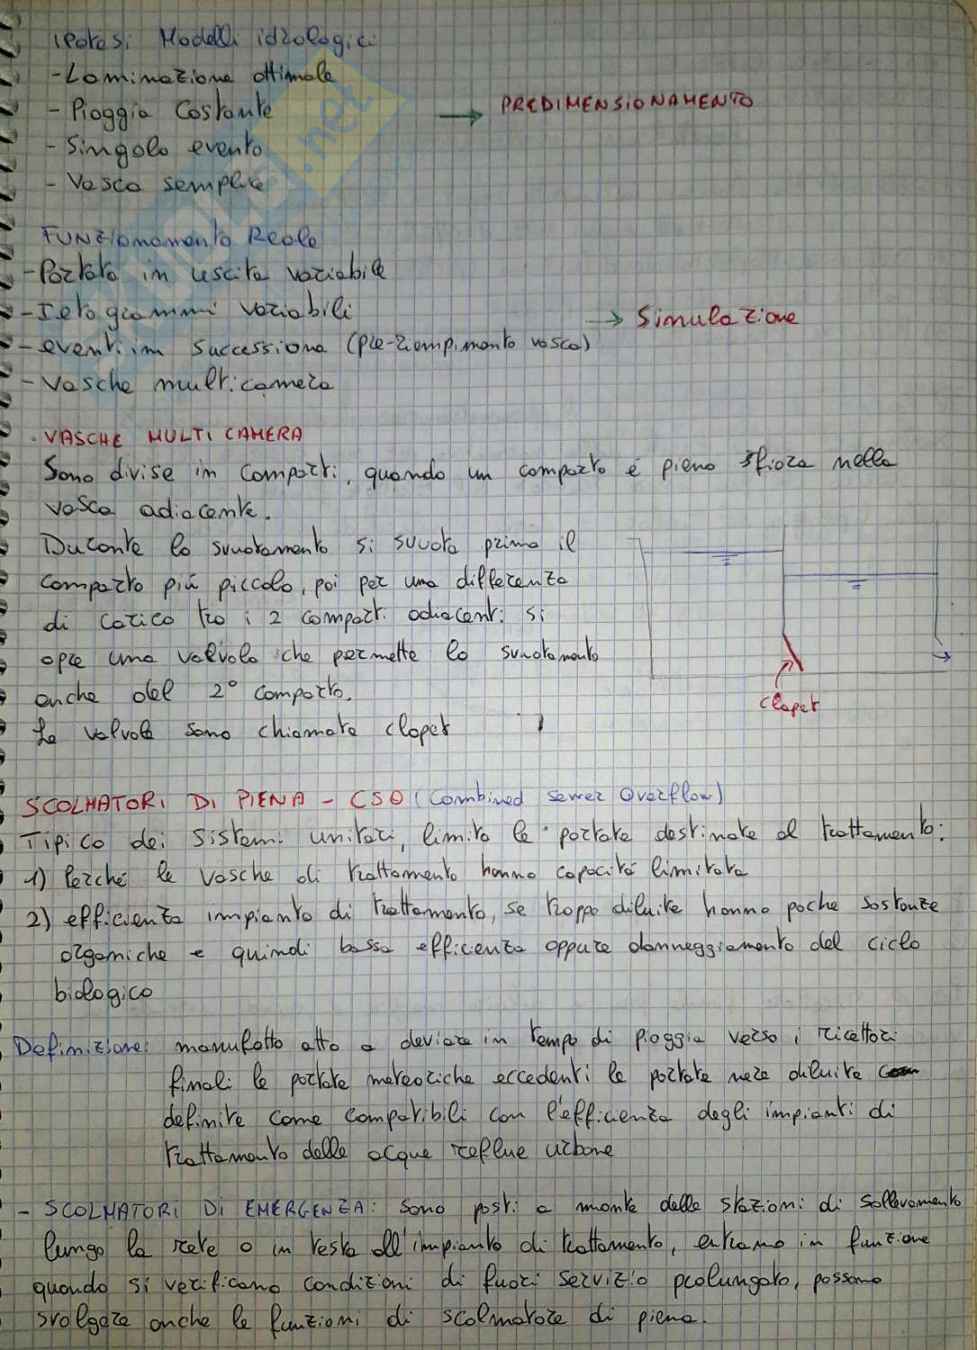 Ipotesi Modelli idrologici
- Laminazione ottimale
- Pioggia Costante
→ PREDIMENSIONAMENTO
- Singolo evento
- Vasca semplice
FUNZIONAMENTO Reale
- Portata in uscita variabile
- Ietogrammi variabili
→ Simulazione
- eventi in successione (pre-riempimento vasca)
- Vasche multicamera
. VASCHE MULTICAMERA
Sono divise in comparti, quando un comparto é pieno sfiora nella
vasca adiacente.
Durante lo svuotamento si svuota prima il
comparto più piccolo, poi per una differenza
di carico tra i 2 comparti adiacenti si
apre una valvola che permette lo svuotamento
anche del 2° comparto.
clapet
Le valvole sono chiamate clapet
SCOLMATORI DI PIENA - CSO (Combined sewer Overflow)
Tipico dei sistemi unitari, limita le portate destinate al trattamento:
1) Perché le vasche di trattamento hanno capacità limitata
2) efficienza impianto di trattamento, se troppo diluite hanno poche sostanze
organiche e quindi bassa efficienza oppure danneggiamento del ciclo
biologico
Definizione: manufatto atto a deviare in tempo di pioggia verso i ricettori
finali le portate meteoriche eccedenti le portate nere diluite
definite come compatibili con l'efficienza degli impianti di
trattamento delle acque reflue urbane
- SCOLMATORI DI EMERGENZA: sono posti a monte delle stazioni di sollevamento
lungo la rete o in testa all'impianto di trattamento, entrano in funzione
quando si verificano condizioni di fuori servizio prolungato, possono
svolgere anche le funzioni di scolmatore di piena.